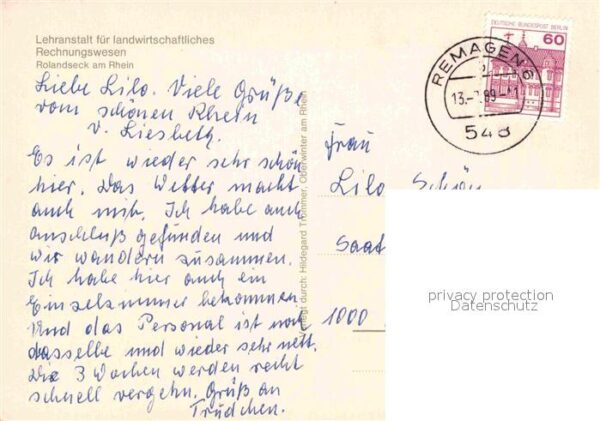 Lehranstalt für landwirtschaftliches
Rechnungswesen
Rolandseck am Rhein
Liebe Lilo. Viele Grüße
vom schönen Rhein
v. Liesbeth.
Es ist wieder sehr schön
hier. Das Wetter macht
auch mit. Ich habe auch
anschluß gefunden und
wir wandern zusammen.
Ich habe hier auch ein
Einzelzimmer bekommen.
Und das Personal ist noch
dasselbe und wieder sehr nett.
Die 3 Wochen werden recht
schnell vergehn. Grüß an
Trudchen.
Verlegt durch: Hildegard Trommer, Oberwinter am Rhein
DEUTSCHE BUNDESPOST BERLIN
60
REMAGEN 6
13.
89
548
Frau
Lilo Schön
Saat
1000
privacy protection
Datenschutz